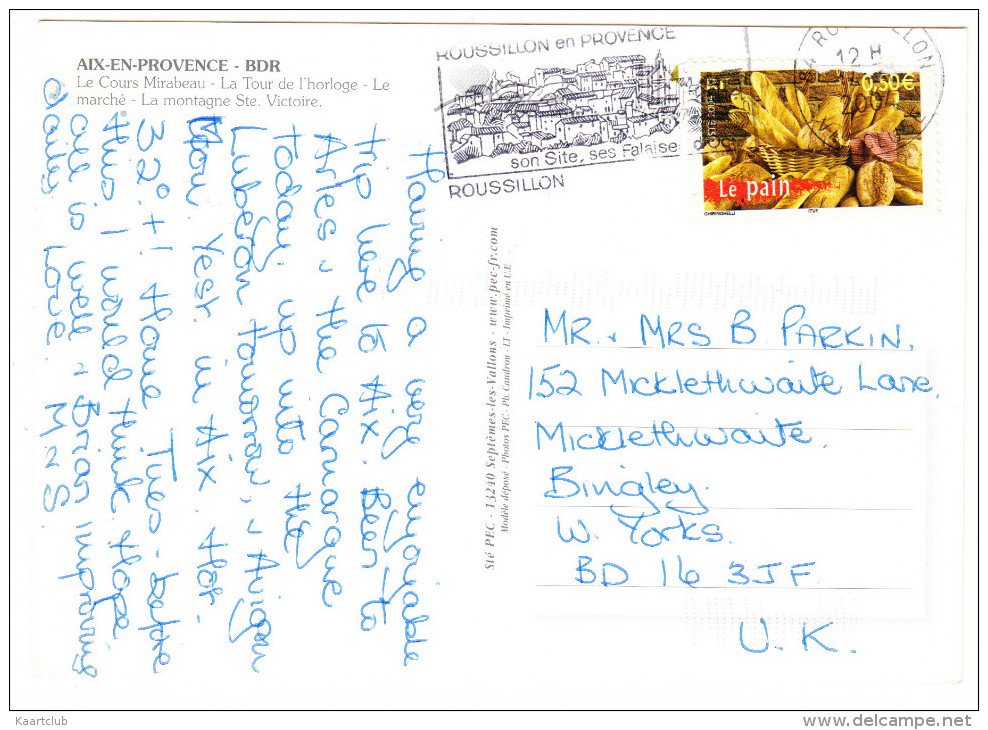 AIX-EN-PROVENCE - BDR
Le Cours Mirabeau - La Tour de l'horloge - Le
marché - La montagne Ste. Victoire.
ROUSSILLON en PROVENCE
son Site, ses Falaise
ROUSSILLON
12 H
0,50€
Le pain
Having a very enjoyable
trip here to Aix. Been to
Arles, the Camargue
today, up into the
Luberon tomorrow, Avigon
Mon. Yest. in Aix. Hot.
32°+! Home Tues - before
this I would think. Hope
one is well & Brian improving
daily Love M N S.
Sté PEC - 13240 Septèmes-les-Vallons - www.pec-fr.com
Modèle déposé - Photos PEC - Ph. Caudron - LT - Imprimé en U.E
MR. & MRS B. PARKIN,
152 Micklethwaite Lane,
Micklethwaite,
Bingley.
W. Yorks.
BD 16 3JF.
U.K.
Kaartclub
www.delcampe.net